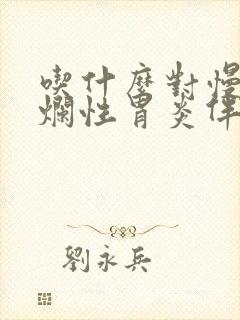 喫什麼對慢
爛性胃炎伴
劉永兵